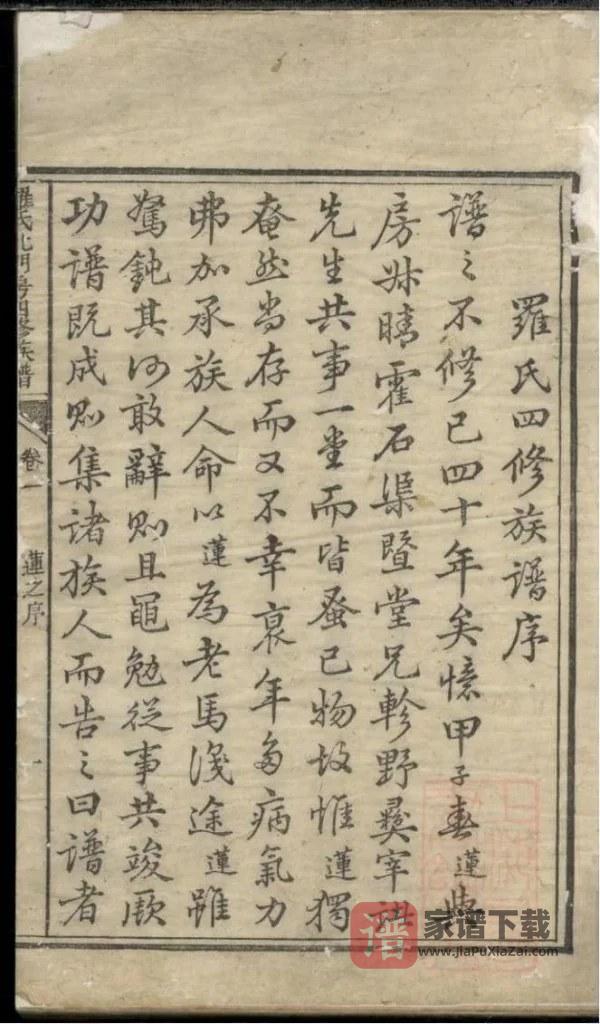 羅氏四修族譜序
譜之不修已四十年矣憶甲子春蓮與
房叔晴霍石渠暨堂兄軫野彝宰諸
先生共事一堂而皆蚤已物故惟蓮獨
奄然尚存而又不幸衰年多病氣力
弗加承族人命以蓮為老馬識途蓮雖
駑鈍其何敢辭則且黽勉從事共竣厥
功譜既成則集諸族人而告之曰譜者
羅氏北門房四修族譜
卷一
蓮之序
一
譜
家谱下载
www.JiaPuXiaZai.com